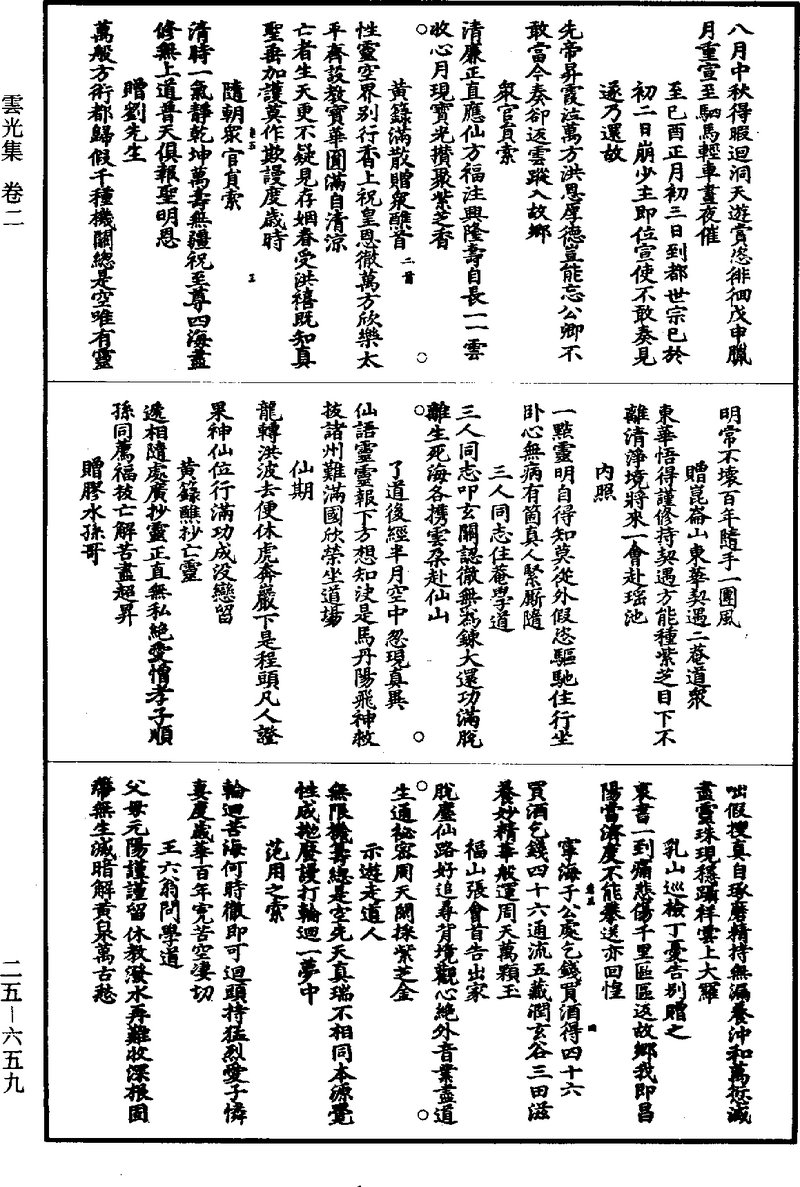 八月中秋得暇迴洞天遊賞恣徘徊戊申臘
月重宣至駟馬輕車晝夜催
至己酉正月初三日到都世宗已於
初二日崩少主即位宣使不敢奏見
遂乃還故
先帝昇霞泣萬方洪恩厚德豈能忘公卿不
敢當今奏卻返雲蹤入故鄉
眾官員索
清廉正直應仙方福注興隆壽自長一一雲
收心月現寶光攢聚紫芝香
黃籙滿散贈眾醮首 二首
性靈空界別行香上祝皇恩徹萬方欣樂太
平齊設教寶華圓滿自清涼
亡者生天更不疑見存姻眷受洪禧既知真
聖垂加護莫作欺謾度歲時
隨朝眾官員索
清時一氣靜乾坤萬壽無疆祝至尊四海盡
修無上道普天俱報聖明恩
贈劉先生
萬般方術都歸假千種機關總是空唯有靈
明常不壞百年隨手一團風
贈崑崙山東華契遇二菴道眾
東華悟得謹修持契遇方能種紫芝目下不
離清淨境將來一會赴瑶池
內照
一點靈明自得知莫從外假恣驅馳住行坐
臥心無病有箇真人緊廝隨
三人同志住菴學道
三人同志叩玄關認徹無為鍊大還功滿脫
離生死海各攜雲朶赴仙山
了道後經半月空中忽現真異
仙語靈靈報下方想知決是馬丹陽飛神救
拔諸州難滿國欣榮坐道場
仙期
龍轉洪波去便休虎奔巖下是程頭凡人證
果神仙位行滿功成没戀留
黃籙醮抄亡靈
遞相隨處廣抄靈正直無私絶愛憎孝子順
孫同薦福拔亡解苦盡超昇
贈膠水孫哥
咄假搜真自琢磨精持無漏養沖和萬愆滅
盡靈珠現穩躡祥雲上大羅
乳山巡檢丁憂告別贈之
哀書一到痛悲傷千里區區返故鄉我即昌
陽當濟度不能攀送亦回惶
寧海于公處乞錢買酒得四十六
買酒乞錢四十六通流五藏潤玄谷三田滋
養妙精華般運周天萬顆玉
福山張會首告出家
脫塵仙路好追尋背境觀心絶外音業盡道
生通祕密周天開採紫芝金
示遊走道人
無限機籌總是空先天真瑞不相同本源覺
性成拋廢謾打輪迴一夢中
范用之索
輪迴苦海何時徹即可迴頭持猛烈愛子憐
妻度歲華百年究苦空凄切
王六翁問學道
父母元陽謹謹留休教潑水再難收深根固
蔕無生滅暗解黃泉萬古愁
雲光集 卷二
二五—六五九